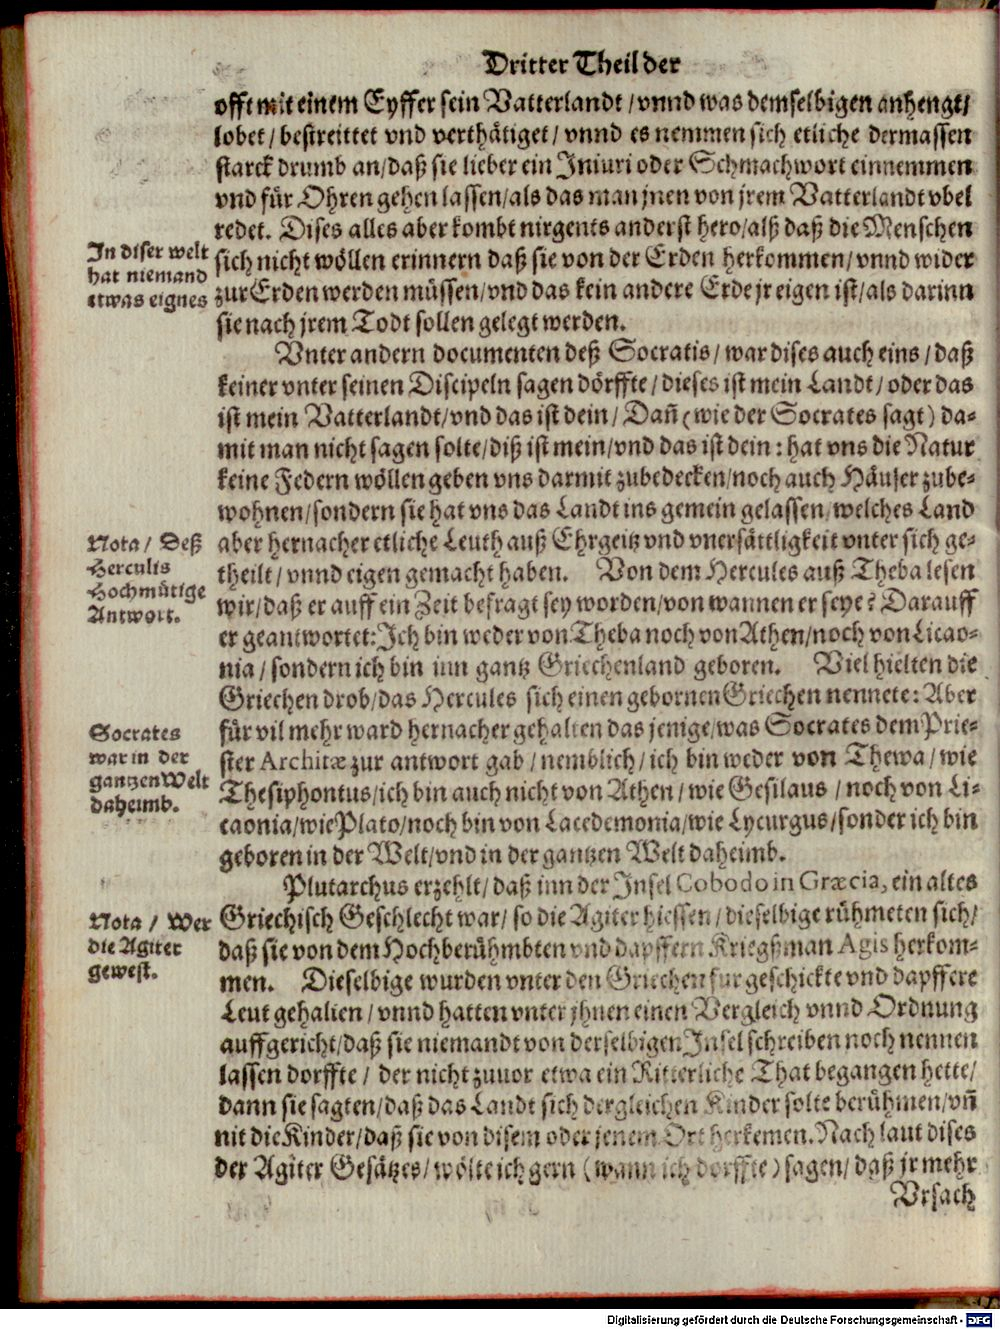 Dritter Theil der
offt mit einem Eyffer sein Vatterlandt / vnnd was demselbigen anhengt/
lobet / bestreittet vnd verthätiget / vnnd es nemmen sich etliche dermassen
starck drumb an/daß sie lieber ein Iniuri oder Schmachwort einnemmen
vnd für Ohren gehen lassen/als das man jnen von jrem Vatterlandt vbel
redet. Dises alles aber kombt nirgents anderst hero/alß daß die Menschen
In diser welt
hat niemand
etwas eignes
sich nicht wöllen erinnern daß sie von der Erden herkommen/vnnd wider
zur Erden werden müssen/vnd das kein andere Erde jr eigen ist/als darinn
sie nach jrem Todt sollen gelegt werden.
Vnter andern documenten deß Socratis / war dises auch eins / daß
keiner vnter seinen Discipeln sagen dörffte / dieses ist mein Landt / oder das
ist mein Vatterlandt/vnd das ist dein / Dañ (wie der Socrates sagt) da-
mit man nicht sagen solte/diß ist mein/vnd das ist dein : hat vns die Natur
keine Federn wöllen geben vns darmit zubedecken/noch auch Häuser zube-
wohnen/sondern sie hat vns das Landt ins gemein gelassen/welches Land
Nota / Deß
Herculis
Hochmütige
Antwort.
aber hernacher etliche Leuth auß Ehrgeitz vnd vnersättligkeit vnter sich ge-
theilt / vnnd eigen gemacht haben. Von dem Hercules auß Theba lesen
wir/daß er auff ein Zeit befragt sey worden/von wannen er seye? Darauff
er geantwortet: Ich bin weder von Theba noch von Athen/noch von Licao-
nia / sondern ich bin inn gantz Griechenland geboren. Viel hielten die
Griechen drob/das Hercules sich einen gebornen Griechen nennete: Aber
Socrates
war in der
gantzen Welt
daheimb.
für vil mehr ward hernacher gehalten das jenige/was Socrates dem Prie-
ster Architæ zur antwort gab / nemblich / ich bin weder von Thewa / wie
Thesiphontus/ich bin auch nicht von Athen / wie Gesilaus / noch von Li-
caonia/wie Plato/noch bin von Lacedemonia/wie Lycurgus/sonder ich bin
geboren in der Welt/vnd in der gantzen Welt daheimb.
Plutarchus erzehlt/ daß inn der Insel Cobodo in Græcia, ein altes
Nota / Wer
die Agiter
gewest.
Griechisch Geschlecht war/ so die Agiter hiessen / dieselbige rühmeten sich/
daß sie von dem Hochberühmbten vnd dapffern Kriegßman Agis herkom-
men. Dieselbige wurden vnter den Griechen für geschickte vnd dapffere
Leut gehalten / vnnd hatten vnter jhnen einen Vergleich vnnd Ordnung
auffgericht/daß sie niemandt von derselbigen Insel schreiben noch nennen
lassen dorffte / der nicht zuuor etwa ein Ritterliche That begangen hette/
dann sie sagten/daß das Landt sich dergleichen Kinder solte berühmen/vñ
nit die Kinder/daß sie von disem oder jenem Ort herkemen. Nach laut dises
der Agiter Gesätzes/ wölte ich gern (wann ich dorffte) sagen/ daß jr mehr
Vrsach
Digitalisierung gefördert durch die Deutsche Forschungsgemeinschaft - DFG